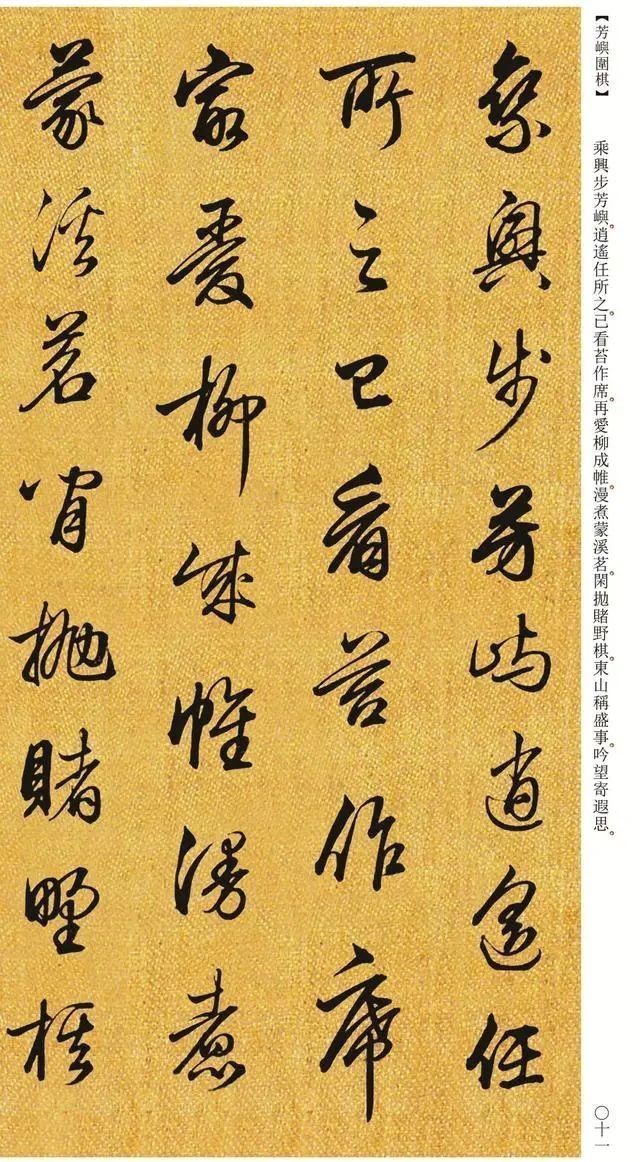 【芳嶼圍棋】
乘興步芳嶼。逍遙任所之。已看苔作席。再愛柳成帷。漫煮蒙溪茗。閑拋賭野棋。東山稱盛事。吟望寄遐思。
〇十一
乘興步芳嶼逍遙任
所之已看苔作席
最愛柳成帷漫煮
蒙溪茗閒拋賭野棋